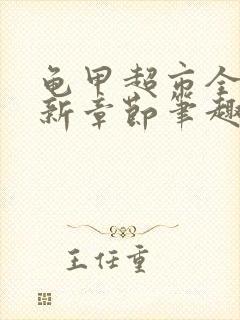 龟甲超市全
新章节笔趣
王任重